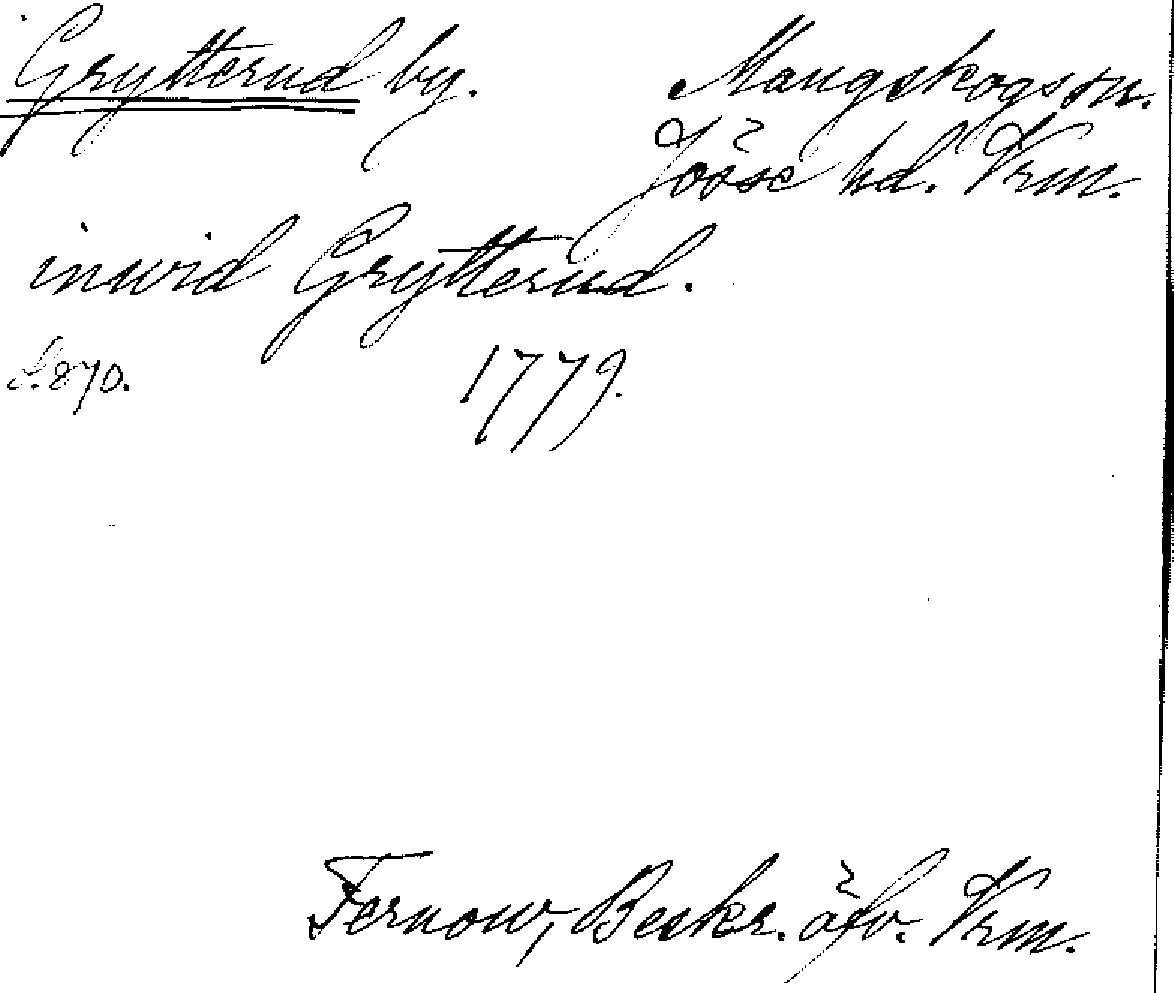 Grytterud by. Mangskogs sn.
Jösse hd. Vrm.
inwid Grytterud.
S. 870. 1779.
Fernow, Beskr. öfv. Vrm.